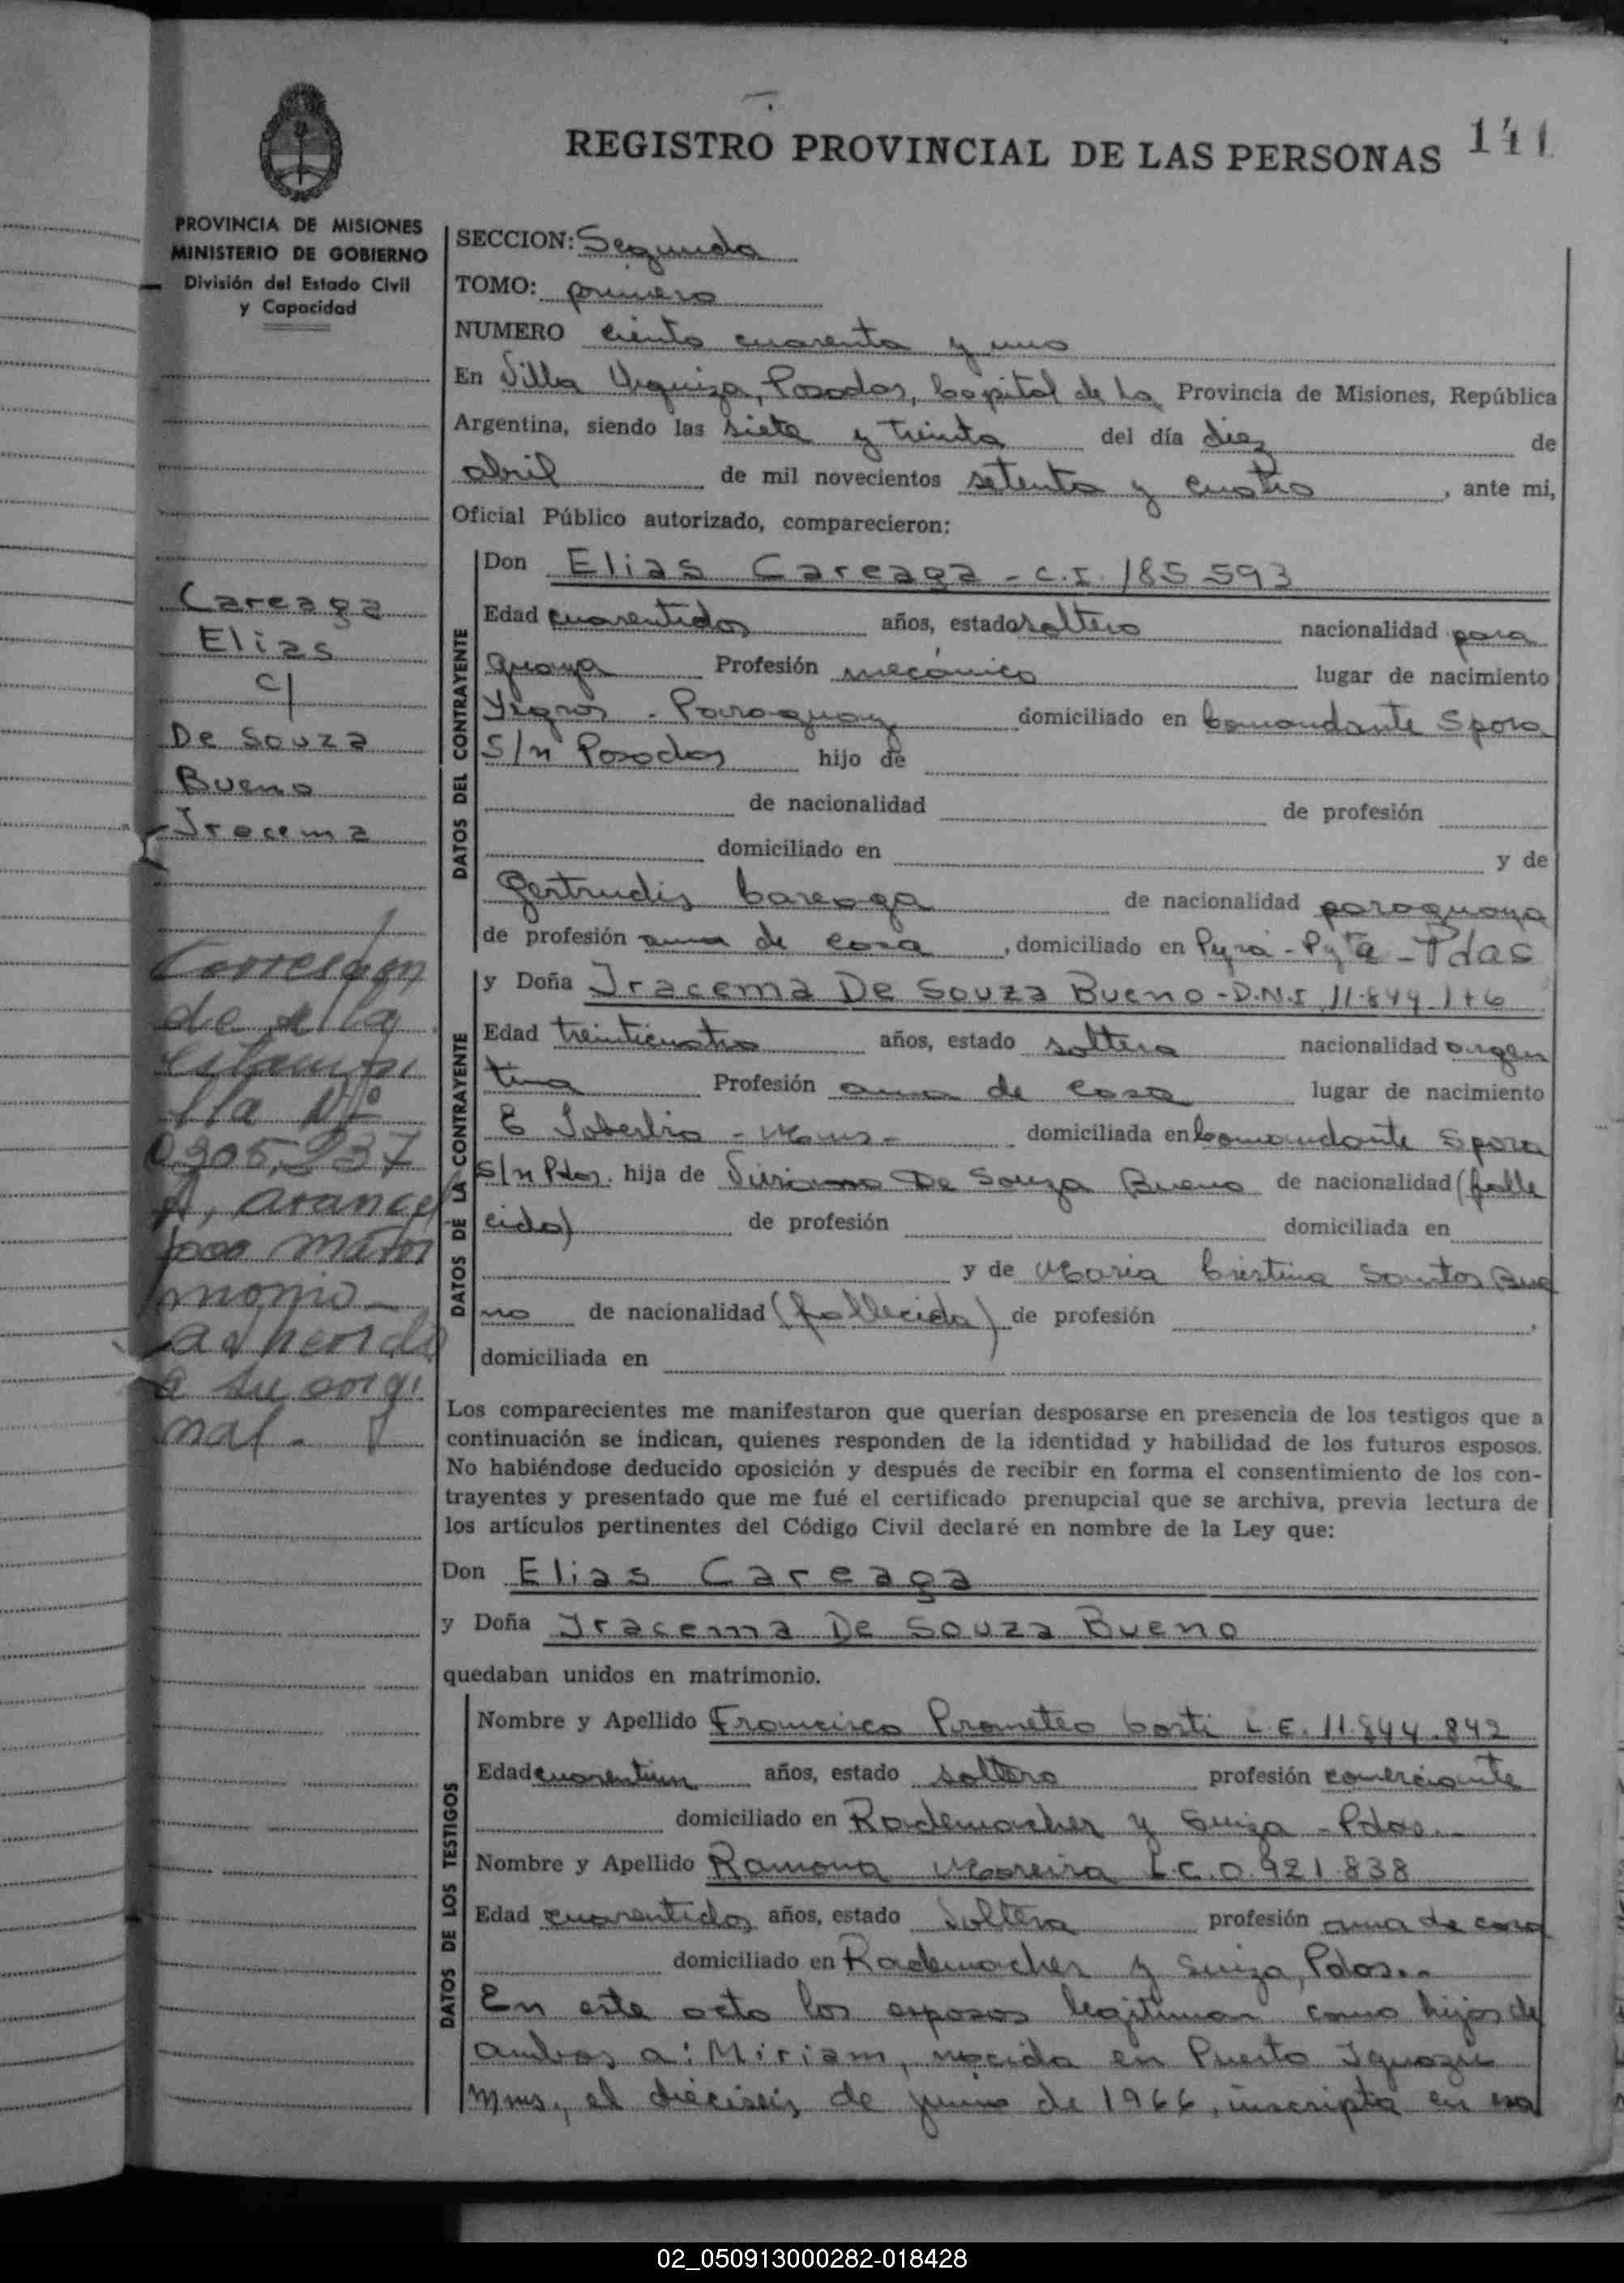 REGISTRO PROVINCIAL DE LAS PERSONAS
141
PROVINCIA DE MISIONES
MINISTERIO DE GOBIERNO
División del Estado Civil
y Capacidad
Careaga
Elias
c/
De Souza
Bueno
Iracema
Correspon
de a la
estampi
lla Nº
0305,237
A, arancel
1000 matri
monio -
adherida
a su origi
nal.
SECCION: Segunda
TOMO: primero
NUMERO ciento cuarenta y uno
En Villa Urquiza, Posadas, Capital de la Provincia de Misiones, República
Argentina, siendo las siete y treinta del día diez de
abril de mil novecientos setenta y cuatro, ante mi,
Oficial Público autorizado, comparecieron:
DATOS DEL CONTRAYENTE
Don Elias Careaga - C.I. 185 593
Edad cuarentidos años, estado soltero nacionalidad para
guaya Profesión mecánico lugar de nacimiento
Yegros - Paraguay domiciliado en Comandante Spora
S/n Posadas hijo de
de nacionalidad de profesión
domiciliado en y de
Gertrudis Careaga de nacionalidad paraguaya
de profesión ama de casa, domiciliado en Pyra-Pyta - Pdas
DATOS DE LA CONTRAYENTE
y Doña Iracema De Souza Bueno - D.N.I 11.844.176
Edad treinticuatro años, estado soltera nacionalidad argen
tina Profesión ama de casa lugar de nacimiento
E Soberbio - Mnes - domiciliada en Comandante Spora
S/n Pdas. hija de De Souza Bueno de nacionalidad (falle
cido) de profesión domiciliada en
y de Maria Cristina Santos Bue
no de nacionalidad (fallecida) de profesión ,
domiciliada en
Los comparecientes me manifestaron que querían desposarse en presencia de los testigos que a
continuación se indican, quienes responden de la identidad y habilidad de los futuros esposos.
No habiéndose deducido oposición y después de recibir en forma el consentimiento de los con-
trayentes y presentado que me fué el certificado prenupcial que se archiva, previa lectura de
los artículos pertinentes del Código Civil declaré en nombre de la Ley que:
Don Elias Careaga
y Doña Iracema De Souza Bueno
quedaban unidos en matrimonio.
DATOS DE LOS TESTIGOS
Nombre y Apellido Francisco Prometeo Costi L.E. 11.844.842
Edad cuarentiun años, estado soltero profesión comerciante
domiciliado en Rademacher y Suiza - Pdas.
Nombre y Apellido Ramona Moreira L.C. 0.921.838
Edad cuarentidos años, estado soltera profesión ama de casa
domiciliado en Rademacher y Suiza, Pdas..
En este acto los esposos legitiman como hijos de
ambos a: Miriam, nacida en Puerto Iguazu
Mnes., el dieciseis de junio de 1966, inscripta en esa
02_050913000282-018428